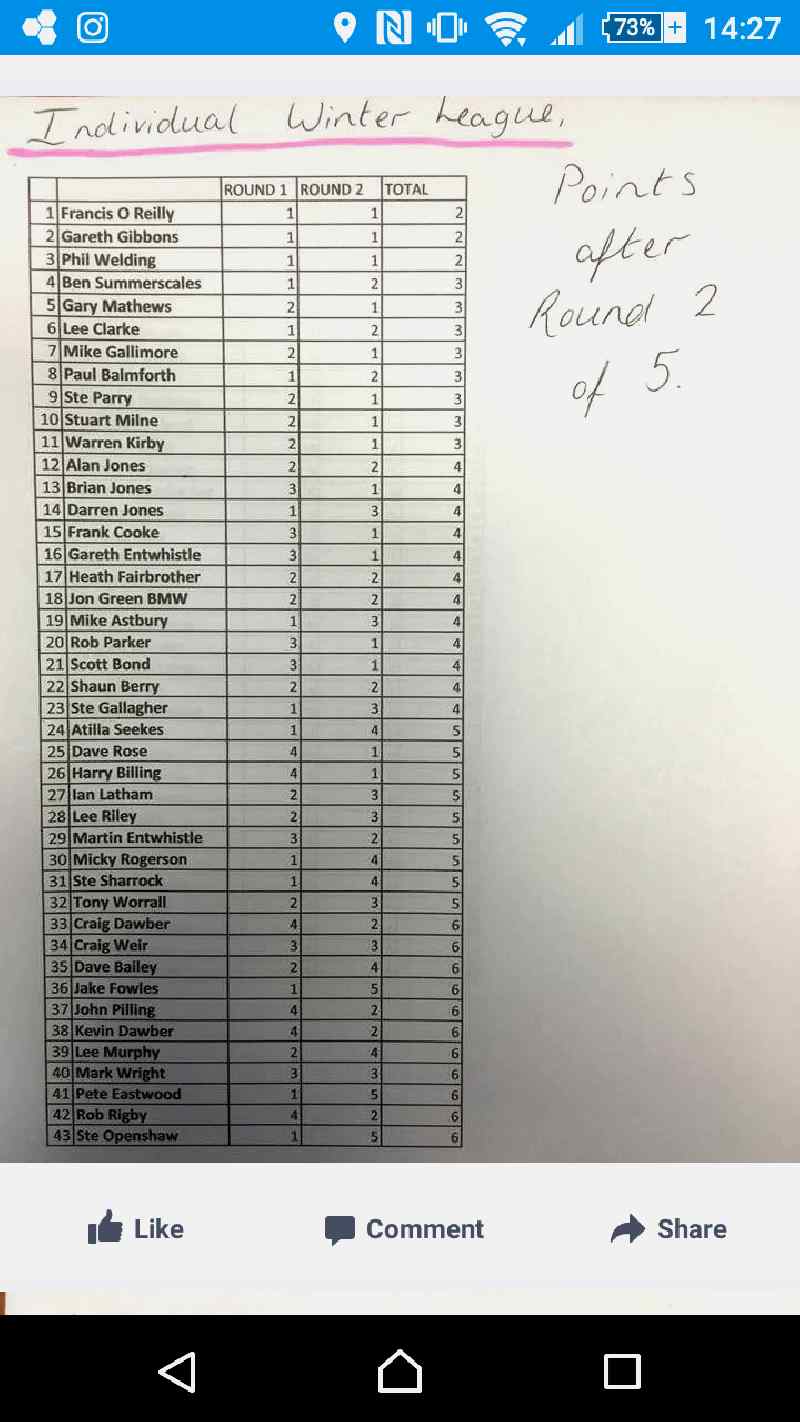 73% 14:27
Individual Winter League.
Points
after
Round 2
of 5.
ROUND 1 ROUND 2 TOTAL
1 Francis O Reilly 1 1 2
2 Gareth Gibbons 1 1 2
3 Phil Welding 1 1 2
4 Ben Summerscales 1 2 3
5 Gary Mathews 2 1 3
6 Lee Clarke 1 2 3
7 Mike Gallimore 2 1 3
8 Paul Balmforth 1 2 3
9 Ste Parry 2 1 3
10 Stuart Milne 2 1 3
11 Warren Kirby 2 1 3
12 Alan Jones 2 2 4
13 Brian Jones 3 1 4
14 Darren Jones 1 3 4
15 Frank Cooke 3 1 4
16 Gareth Entwhistle 3 1 4
17 Heath Fairbrother 2 2 4
18 Jon Green BMW 2 2 4
19 Mike Astbury 1 3 4
20 Rob Parker 3 1 4
21 Scott Bond 3 1 4
22 Shaun Berry 2 2 4
23 Ste Gallagher 1 3 4
24 Atilla Seekes 1 4 5
25 Dave Rose 4 1 5
26 Harry Billing 4 1 5
27 Ian Latham 2 3 5
28 Lee Riley 2 3 5
29 Martin Entwhistle 3 2 5
30 Micky Rogerson 1 4 5
31 Ste Sharrock 1 4 5
32 Tony Worrall 2 3 5
33 Craig Dawber 4 2 6
34 Craig Weir 3 3 6
35 Dave Bailey 2 4 6
36 Jake Fowles 1 5 6
37 John Pilling 4 2 6
38 Kevin Dawber 4 2 6
39 Lee Murphy 2 4 6
40 Mark Wright 3 3 6
41 Pete Eastwood 1 5 6
42 Rob Rigby 4 2 6
43 Ste Openshaw 1 5 6
Like Comment Share